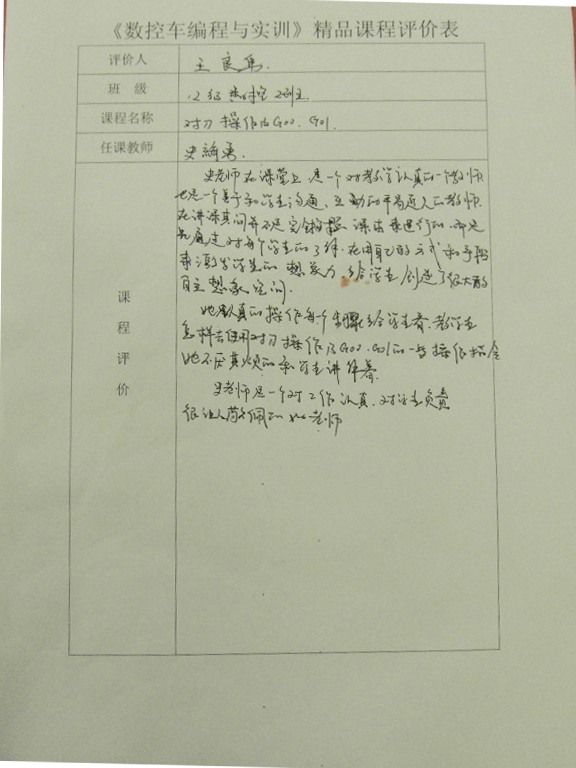 《数控车编程与实训》精品课程评价表
评价人 王良
班 级 12级 2班
课程名称 对刀操作及G00、G01.
任课教师 史
课程评价
史老师在课堂上 是一个对教学认真的一个教师.
也是一个善于和学生沟通、互动的平易近人的教师.
在讲课期间并不是完全按 课本来进行的.而是
先通过对每个学生的了解.在用自己的方式和手段
来激发学生的想象力,给学生创造了很大的
自主想象空间.
她认真的操作每个步骤给学生看.教学生
怎样去使用对刀操作及G00、G01的一些操作指令
她不厌其烦的和学生讲解着.
史老师是一个对工作认真.对学生负责
很让人敬佩的 老师